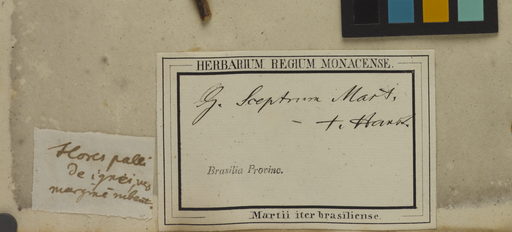 HERBARIUM REGIUM MONACENSE.
G. Sceptrum Mart.
Brasilia Provinc.
Martii iter brasiliense.
Flores palli
de
margine